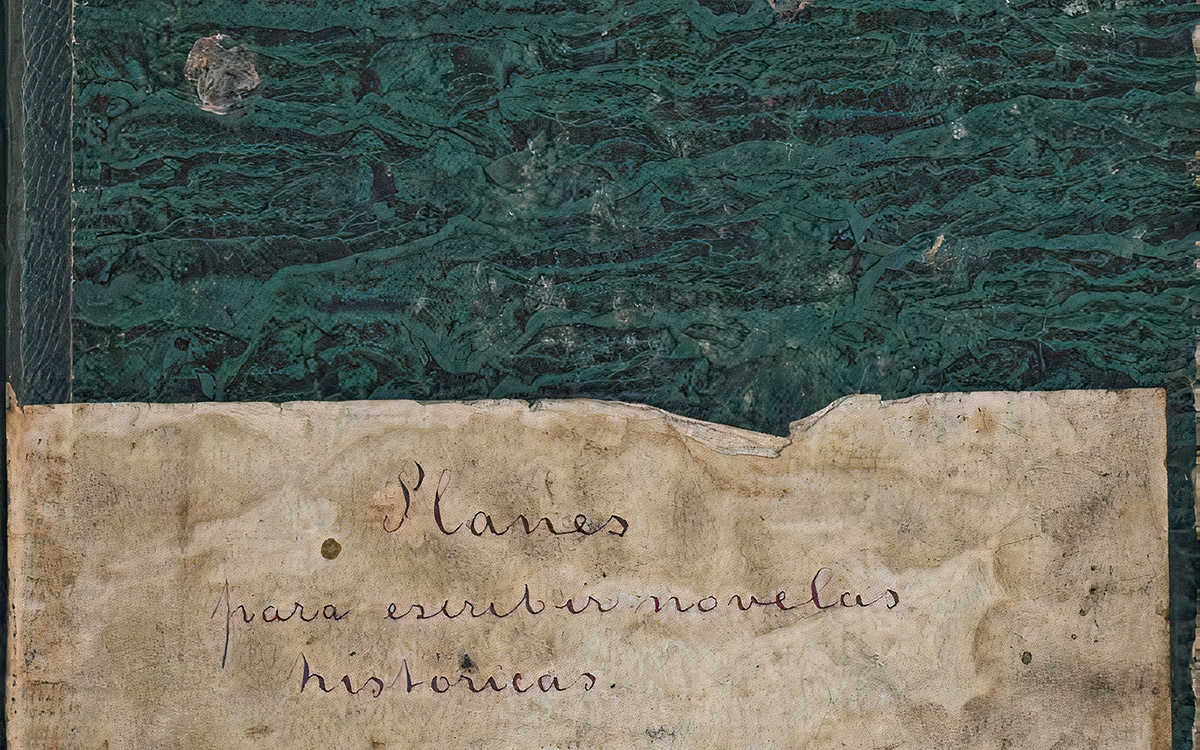 Planes
para escribir novelas
historicas.